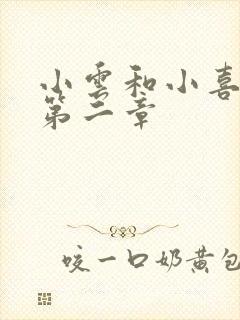 小雲和小喜
第二章
咬一口奶黄包